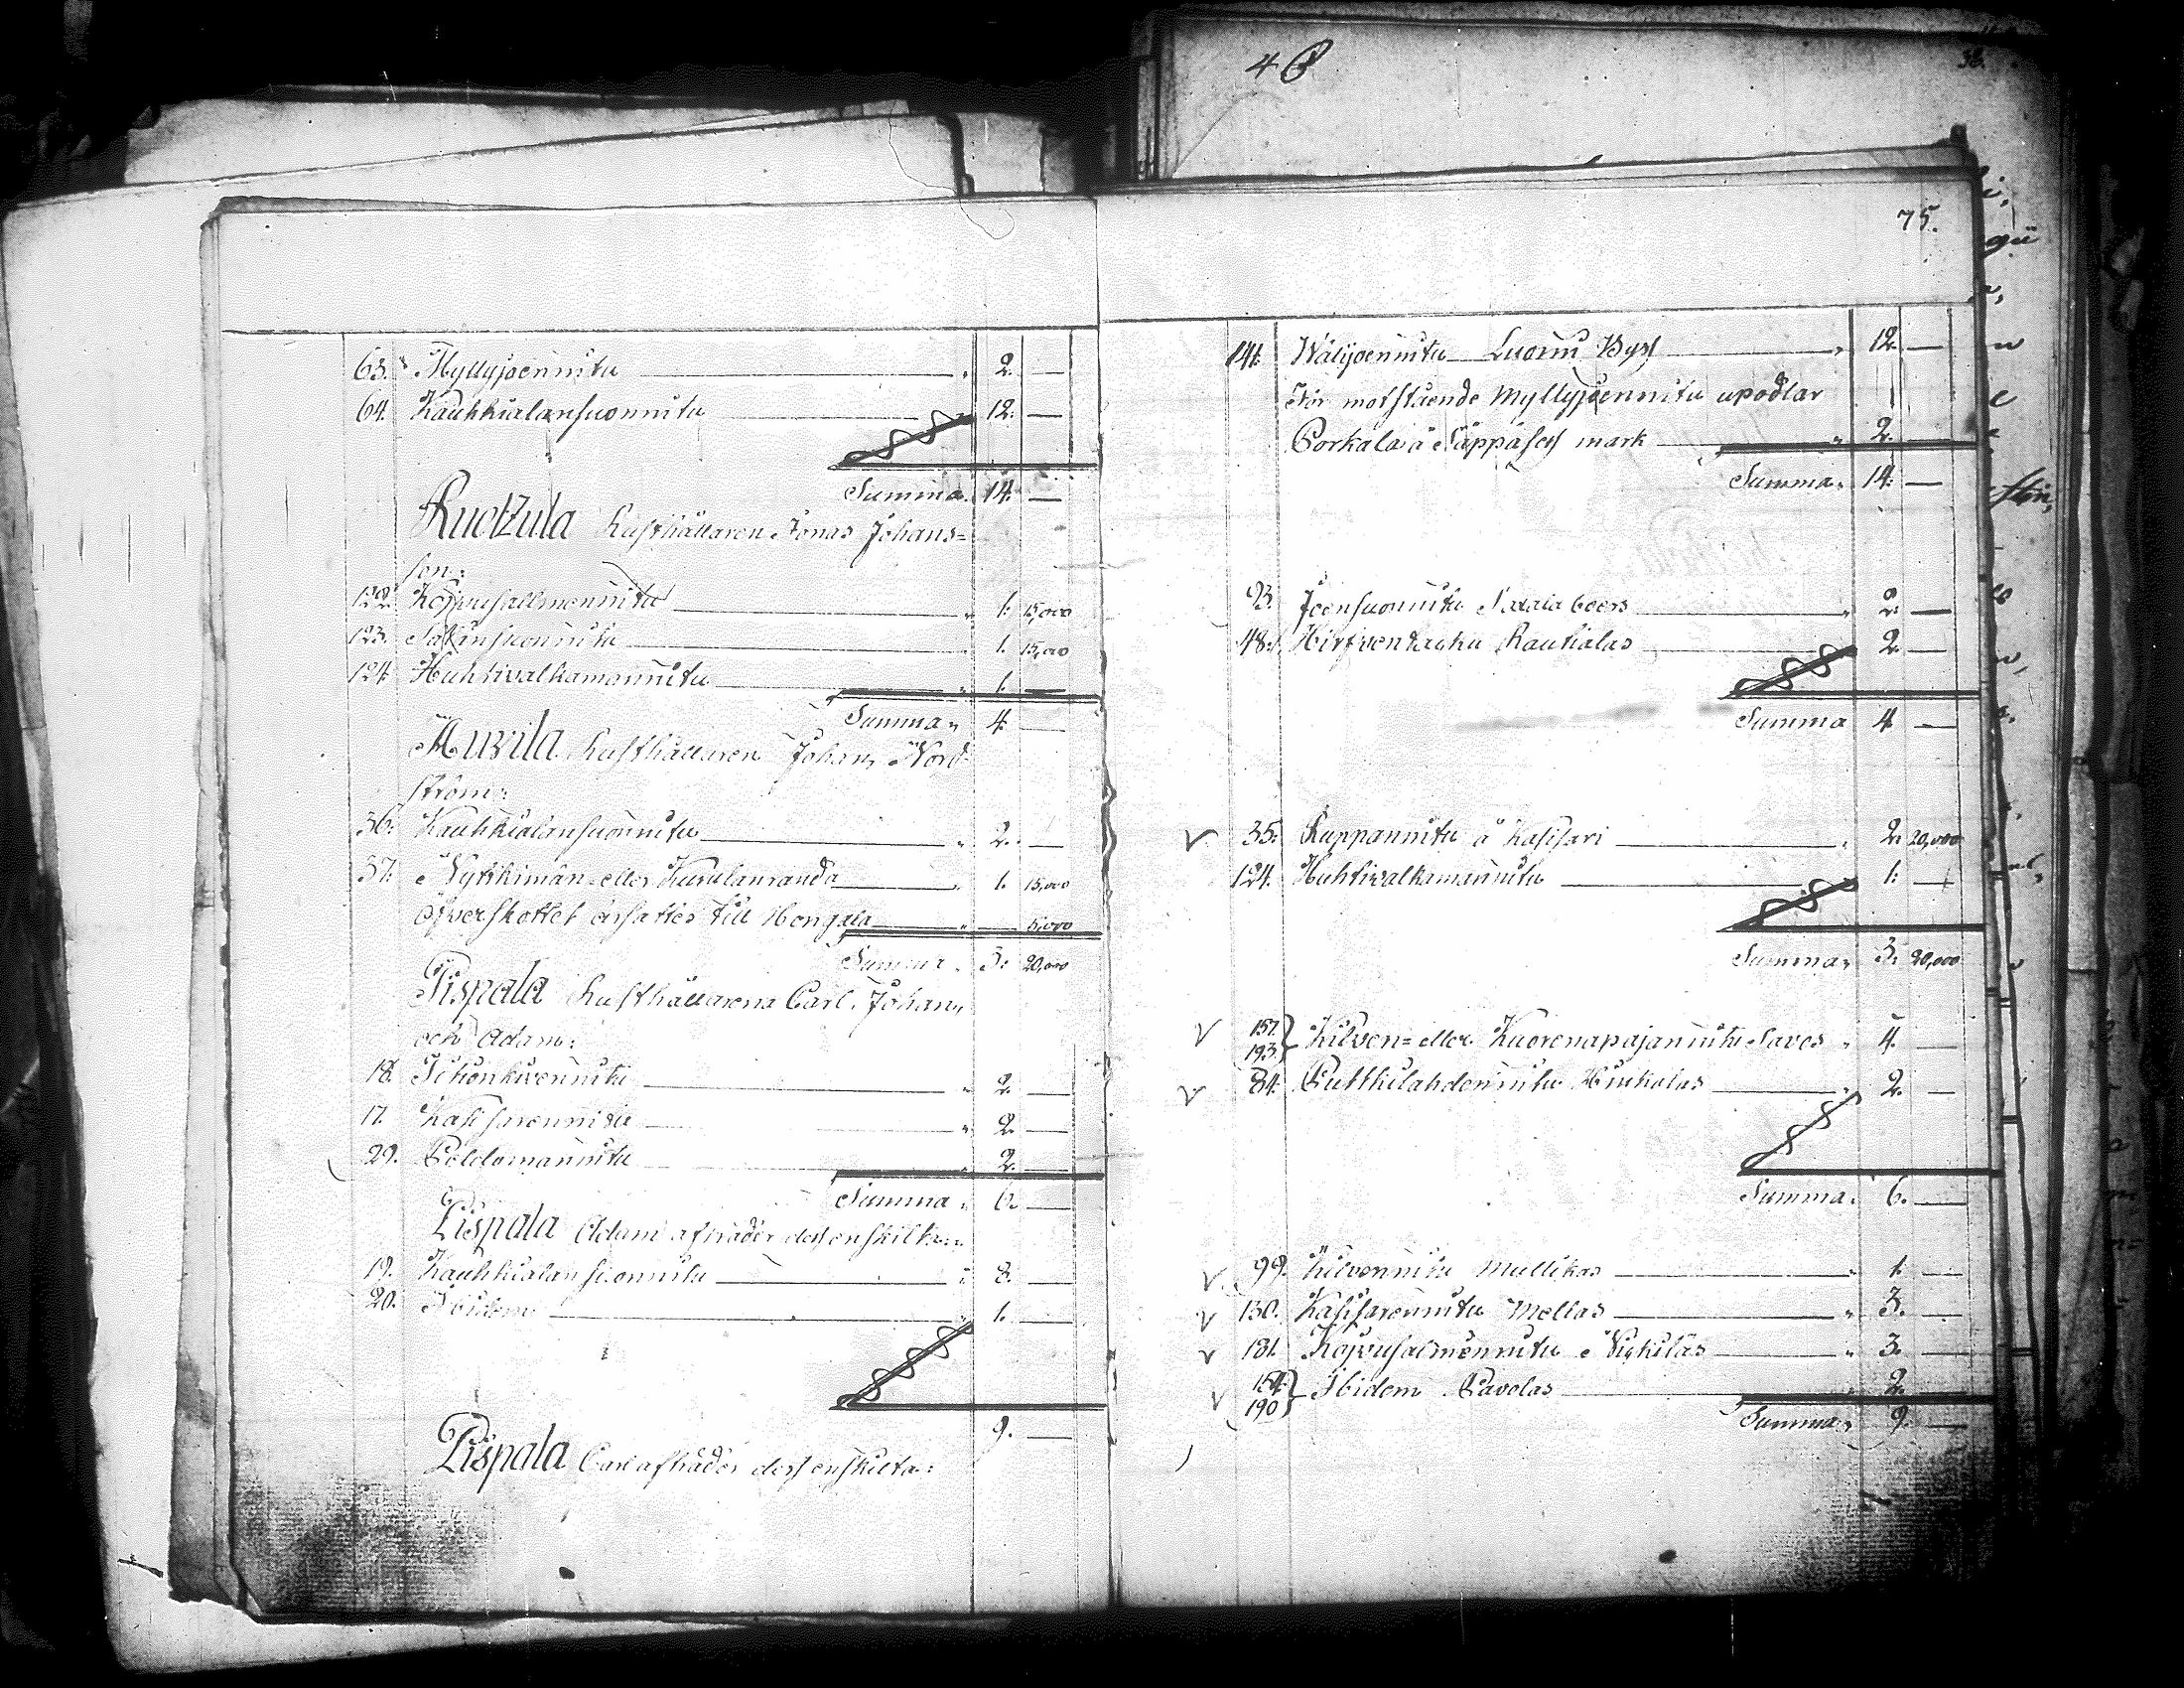 4
75.
63. Myllyjoennitu 2. —
64. Kauhkialansuonnitu 12. —
Summa. 14. —
Rusthållaren Jonas Johans=
son:
122. Kojvusallmennitu 1. 15,000
123. 1. 15,000
124. Huhtivalkamannitu 1. —
Summa 4. —
Rusthållaren Johan Nord=
ström:
36. Kauhkialansuonnitu 2. —
37. eller Kurulanranda 1. 15,000
Öfverskottet ersattes till Hongala 5,000
Summa 3. 20,000
Pispala Rusthållarena Carl, Johan,
och Adam:
18. 2. —
17. Kasisarennitu 2. —
29. 2. —
Summa 6. —
Pispala Adam afträder dess enskilta:
19. Kauhkialansuonnitu 8. —
20. Ibidem 1. —
9. —
Pispala Carl afträder dess enskilta:
141. Wälijoennitu Luomi Bys 12. —
För motstående Myllyjoennitu upodlar
Porkala å Säppäses mark 2. —
Summa 14. —
93. Joensuonnitu 2. —
48. Rauhalas 2. —
Summa 4 —
V 35. Ruppannitu å Kasisari 2. 20,000
124. Huhtivalkamannitu 1. —
Summa 3. 20,000
V 157. 193. Kilven= eller Kuorenapajannitu Saves 4. —
V 84. Putkilahdennitu 2. —
Summa 6. —
V 99. Kilvennitu Mullikas 1. —
V 130. Kasisarennitu Mellas 3. —
V 181. Kojvusalmennitu Nigkiläs 3. —
V 154. 190 Ibidem Pavolas 2. —
Summa 9. —